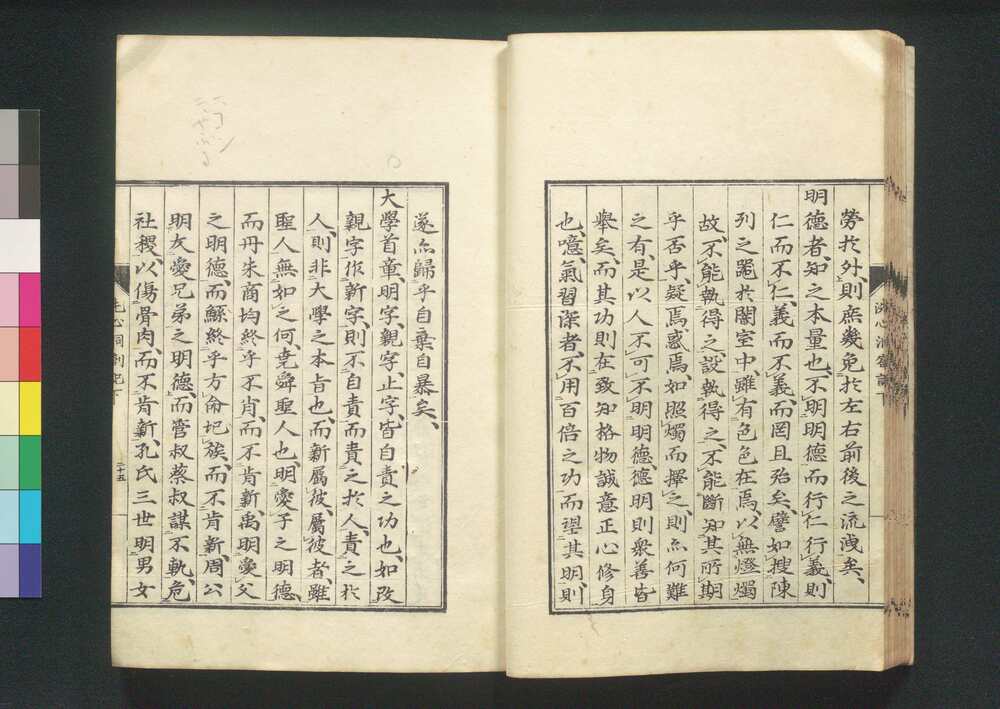 勞於外、則庶幾免於左右前後之流洩矣、
明德者、知之本量也、不明明德而行仁行義、則
仁而不仁、義而不義、而罔且殆矣、譬如搜陳
列之器於闇室中、雖有色色在焉、以無燈燭
故、不能執得之、設執得之、不能斷知其所期
乎否乎、疑焉惑焉、如照燭而擇之、則亦何難
之有、是以人不可不明明德、德明則衆善皆
舉矣、而其功則在致知格物誠意正心修身
也、噫、氣習深者、不用百倍之功而望其明、則
遂亦歸乎自棄自暴矣、
大學首章、明字、親字、止字、皆自責之功也、如改
親字作新字、則不自責而責之於人、責之於
人、則非大學之本旨也、而新屬彼、屬彼者、雖
聖人無如之何、堯舜聖人也、明愛子之明德、
而丹朱商均終乎不肖、而不肯新、禹明愛父
之明德、而鯀終乎方命圮族、而不肯新、周公
明友愛兄弟之明德、而管叔蔡叔謀不軌、危
社稷、以傷骨肉、而不肯新、孔氏三世明男女
洗心洞劄記下
二十五